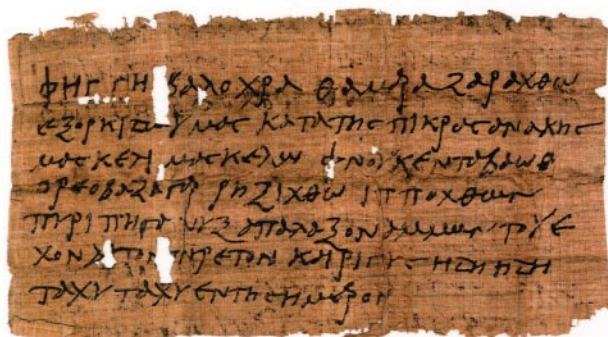 θαμρα ζαραχθω
εξορκιζω υμας κατα της πικρας ανακης
μασκελι μασκελλω φνουκενταβαωθ
ορεοβαζαγρ ρηξιχθω ιπποχθων
πυριπηγανυξ απαλαξον αμμων τον ε
χοντα τον πυρετον ηδη ηδη
ταχυ ταχυ εν τη σημερον